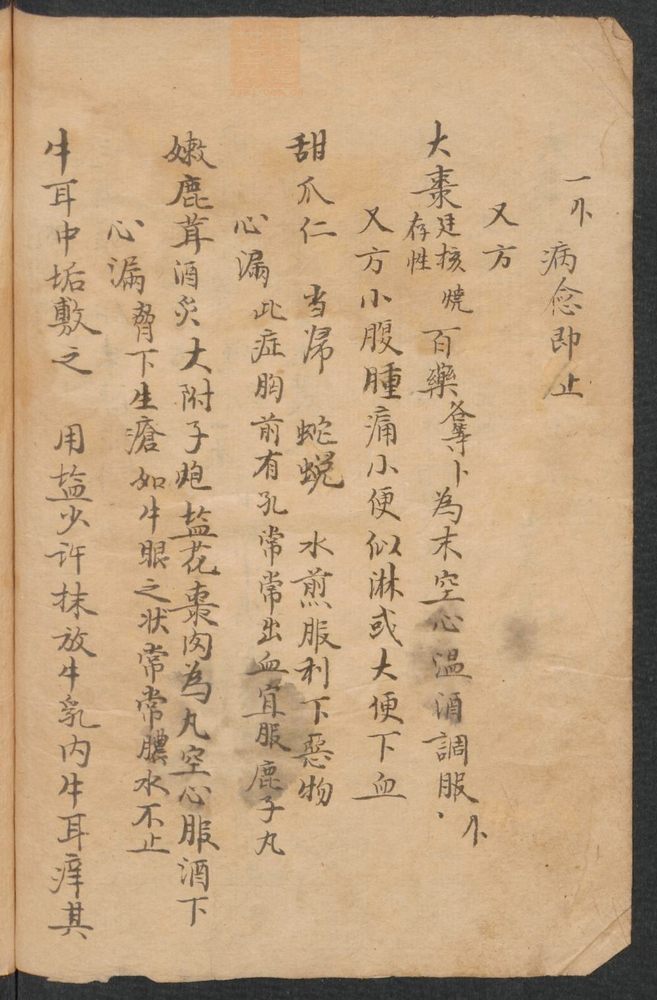 一ト 病念即止
又方
大棗廷核燒存性 百藥各等卜為末空心温酒調服
又方小腹腫痛小便似淋或大便下血
甜瓜仁 当㷌 蛇蜕 水煎服利下惡物
心漏此症胸前有孔常常出血宜服鹿子丸
嫩鹿茸酒炙大附子炮盐花棗肉為丸空心服酒下
心漏脅下生瘡如牛眼之状常常膿水不止
牛耳中垢敷之 用盐少许抹放牛乳内牛耳痒其